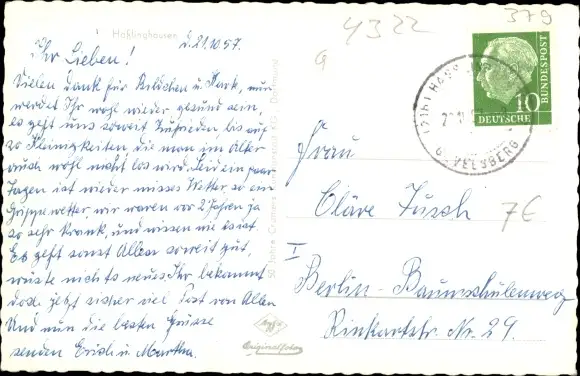 Haßlinghausen
d. 21.10.57.
Ihr Lieben!
Vielen Dank für Bildchen u. Mark, nun
werdet Ihr wohl wieder gesund sein,
es geht uns soweit zufrieden bis auf
so Kleinigkeiten die man im Alter
auch wohl nicht los wird. Seid ein paar
Tagen ist wieder mieses Wetter so ein
Grippewetter, wir waren vor 2 Jahren ja
so sehr krank, und wissen wie es ist.
Es geht sonst Allen soweit gut,
wüste nichts neues. Ihr bekommt
doch jetzt sicher viel Post von Allen
Und nun die besten Grüsse
senden Erich u. Martha.
50 Jahre Cramers Kunstanstalt KG. Dortmund
Agfa
Originalfoto
4322
379
9
DEUTSCHE
BUNDESPOST
10
Frau
Cläre Tusch
7€
I
Berlin-Baumschulenweg
Rinkartstr. Nr. 29.